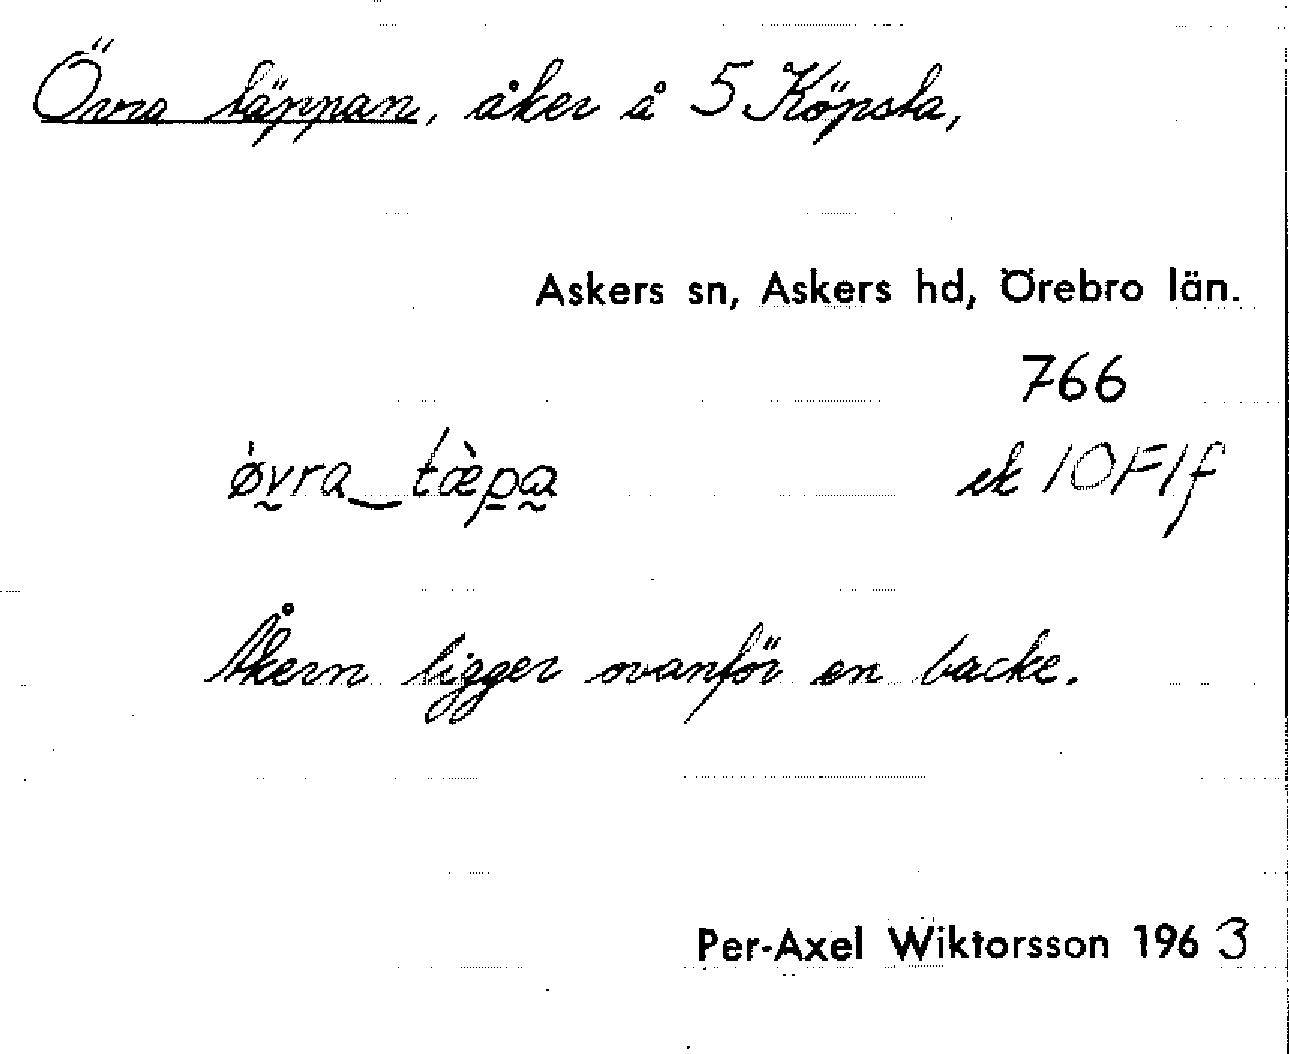 Övra täppan, åker å 5 Köpsta,
Askers sn, Askers hd, Örebro län.
766
øvra tæpa
ek 10F1f
Åkern ligger ovanför en backe.
Per-Axel Wiktorsson 1963